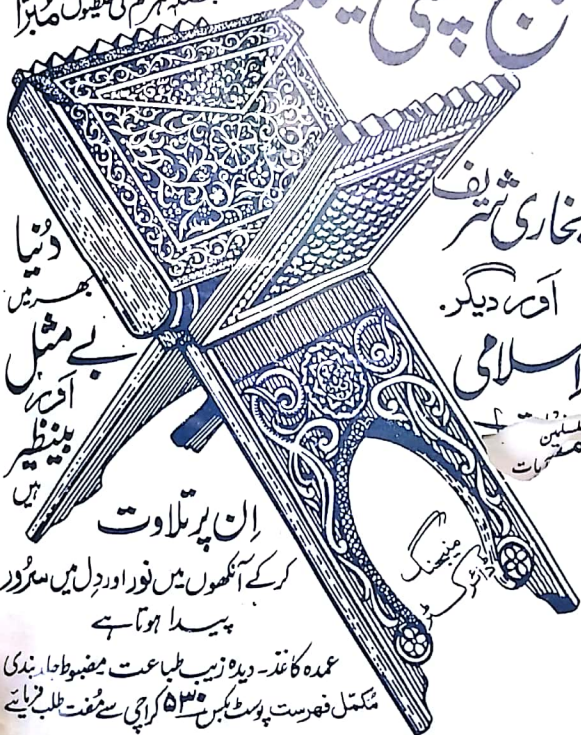 غلطیوں مُبرّا
بخاری شریف
اور دیگر
اسلامی
دُنیا
بھر میں
بے مثل
اور
بینظیر
ہیں
اِن پر تلاوت
کرکے آنکھوں میں نور اور دِل میں سرُور
پیدا ہوتا ہے
عمدہ کاغذ۔ دیدہ زیب طباعت۔ مضبوط جلد بندی
مُکمّل فہرست پوسٹ بکس ۵۳۰ کراچی سے مُفت طلب فرمایئے
مینیجنگ
ڈائرکٹر